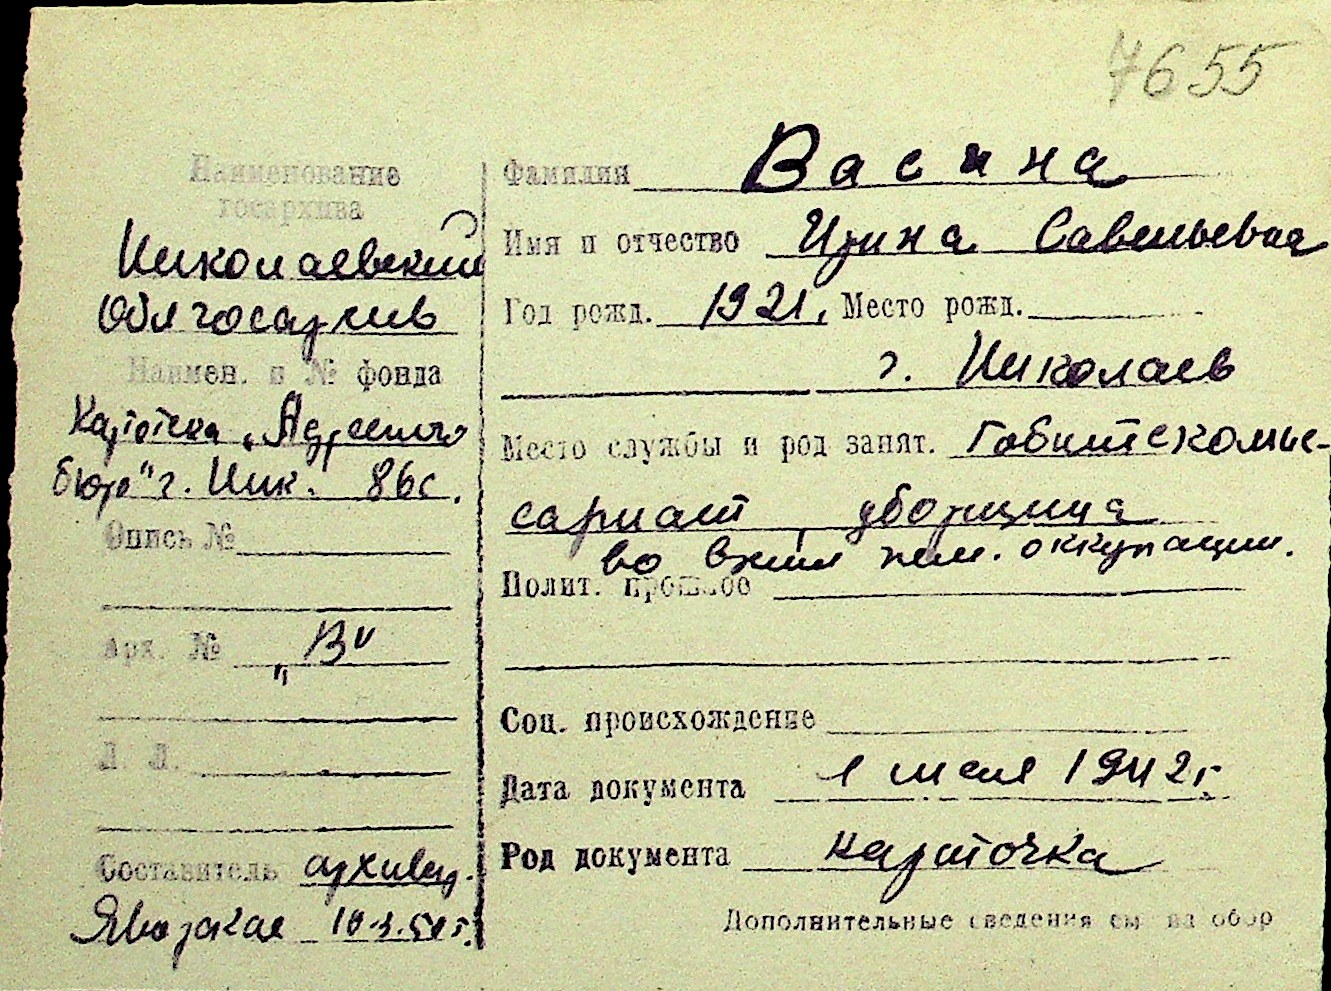 7655
Наименование
госархива
Николаевский
Облгосархив
Наимен. и № фонда
Картотека „Адресного
бюро" г. Ник. 86с.
Опись №
Арх. № „В"
Л. Л.
Составитель архивар.
Яворская 10.3.50 г.
Фамилия Васина
Имя и отчество Ирина Савельевна
Год рожд. 1921, Место рожд.
г. Николаев
Место службы и род занят. Гобитскомис-
сариат, уборщица
во время нем. оккупации.
Полит. прошлое
Соц. происхождение
Дата документа 1 июля 1942 г.
Род документа карточка
Дополнительные сведения см на обор